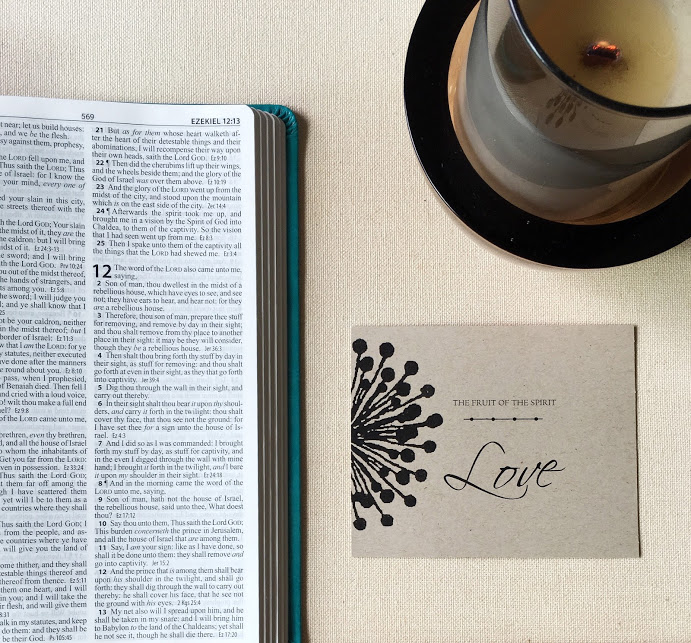 569
EZEKIEL 12:13
near; let us build houses:
and we be the flesh.
against them, prophesy,
LORD fell upon me, and
Thus saith the LORD; Thus
of Israel: for I know the
your mind, every one of
your slain in this city,
the streets thereof with the
the Lord GOD; Your slain
the midst of it, they are the
caldron: but I will bring
midst of it. Ez 24:3-13
sword; and I will bring
the Lord GOD. Prv 10:24
you out of the midst thereof,
the hands of strangers, and
among you. Ez 5:8
the sword; I will judge you
and ye shall know that I
be your caldron, neither
in the midst thereof; but I
border of Israel: Ez 11:3
that I am the LORD: for ye
statutes, neither executed
done after the manners
round about you. Ez 8:10
pass, when I prophesied,
of Benaiah died. Then fell I
and cried with a loud voice,
wilt thou make a full end
Ez 9:8
of the LORD came unto me,
brethren, even thy brethren,
and all the house of Israel
whom the inhabitants of
Get you far from the LORD:
given in possession. Ez 33:24
Thus saith the Lord GOD;
them far off among the
I have scattered them
yet will I be to them as a
countries where they shall
Thus saith the Lord GOD; I
from the people, and
the countries where ye have
will give you the land of
come thither, and they shall
detestable things thereof and
thereof from thence. Ez 5:11
them one heart, and I will
in you; and I will take the
flesh, and will give them
walk in my statutes, and keep
do them: and they shall be
be their God. Ps 105:45
21 But as for them whose heart walketh af-
ter the heart of their detestable things and their
abominations, I will recompense their way upon
their own heads, saith the Lord GOD. Ez 9:10
22 ¶ Then did the cherubims lift up their wings,
and the wheels beside them; and the glory of the
God of Israel was over them above. Ez 10:19
23 And the glory of the LORD went up from the
midst of the city, and stood upon the mountain
which is on the east side of the city. Zec 14:4
24 ¶ Afterwards the spirit took me up, and
brought me in a vision by the Spirit of God into
Chaldea, to them of the captivity. So the vision
that I had seen went up from me. Ez 8:3
25 Then I spake unto them of the captivity all
the things that the LORD had shewed me. Ez 3:4
12 The word of the LORD also came unto me,
saying,
2 Son of man, thou dwellest in the midst of a
rebellious house, which have eyes to see, and see
not; they have ears to hear, and hear not: for they
are a rebellious house.
3 Therefore, thou son of man, prepare thee stuff
for removing, and remove by day in their sight;
and thou shalt remove from thy place to another
place in their sight: it may be they will consider,
though they be a rebellious house. Jer 36:3
4 Then shalt thou bring forth thy stuff by day in
their sight, as stuff for removing: and thou shalt
go forth at even in their sight, as they that go forth
into captivity. Jer 39:4
5 Dig thou through the wall in their sight, and
carry out thereby.
6 In their sight shalt thou bear it upon thy shoul-
ders, and carry it forth in the twilight: thou shalt
cover thy face, that thou see not the ground: for
I have set thee for a sign unto the house of Is-
rael. Ez 4:3
7 And I did so as I was commanded: I brought
forth my stuff by day, as stuff for captivity, and
in the even I digged through the wall with mine
hand; I brought it forth in the twilight, and I bare
it upon my shoulder in their sight. Ez 24:18
8 ¶ And in the morning came the word of the
LORD unto me, saying,
9 Son of man, hath not the house of Israel,
the rebellious house, said unto thee, What doest
thou? Ez 17:12
10 Say thou unto them, Thus saith the Lord GOD;
This burden concerneth the prince in Jerusalem,
and all the house of Israel that are among them.
11 Say, I am your sign: like as I have done, so
shall it be done unto them: they shall remove and
go into captivity. Jer 15:2
12 And the prince that is among them shall bear
upon his shoulder in the twilight, and shall go
forth: they shall dig through the wall to carry out
thereby: he shall cover his face, that he see not
the ground with his eyes. 2 Kgs 25:4
13 My net also will I spread upon him, and he
shall be taken in my snare: and I will bring him
to Babylon to the land of the Chaldeans; yet shall
he not see it, though he shall die there. Ez 17:20
THE FRUIT OF THE SPIRIT
Love